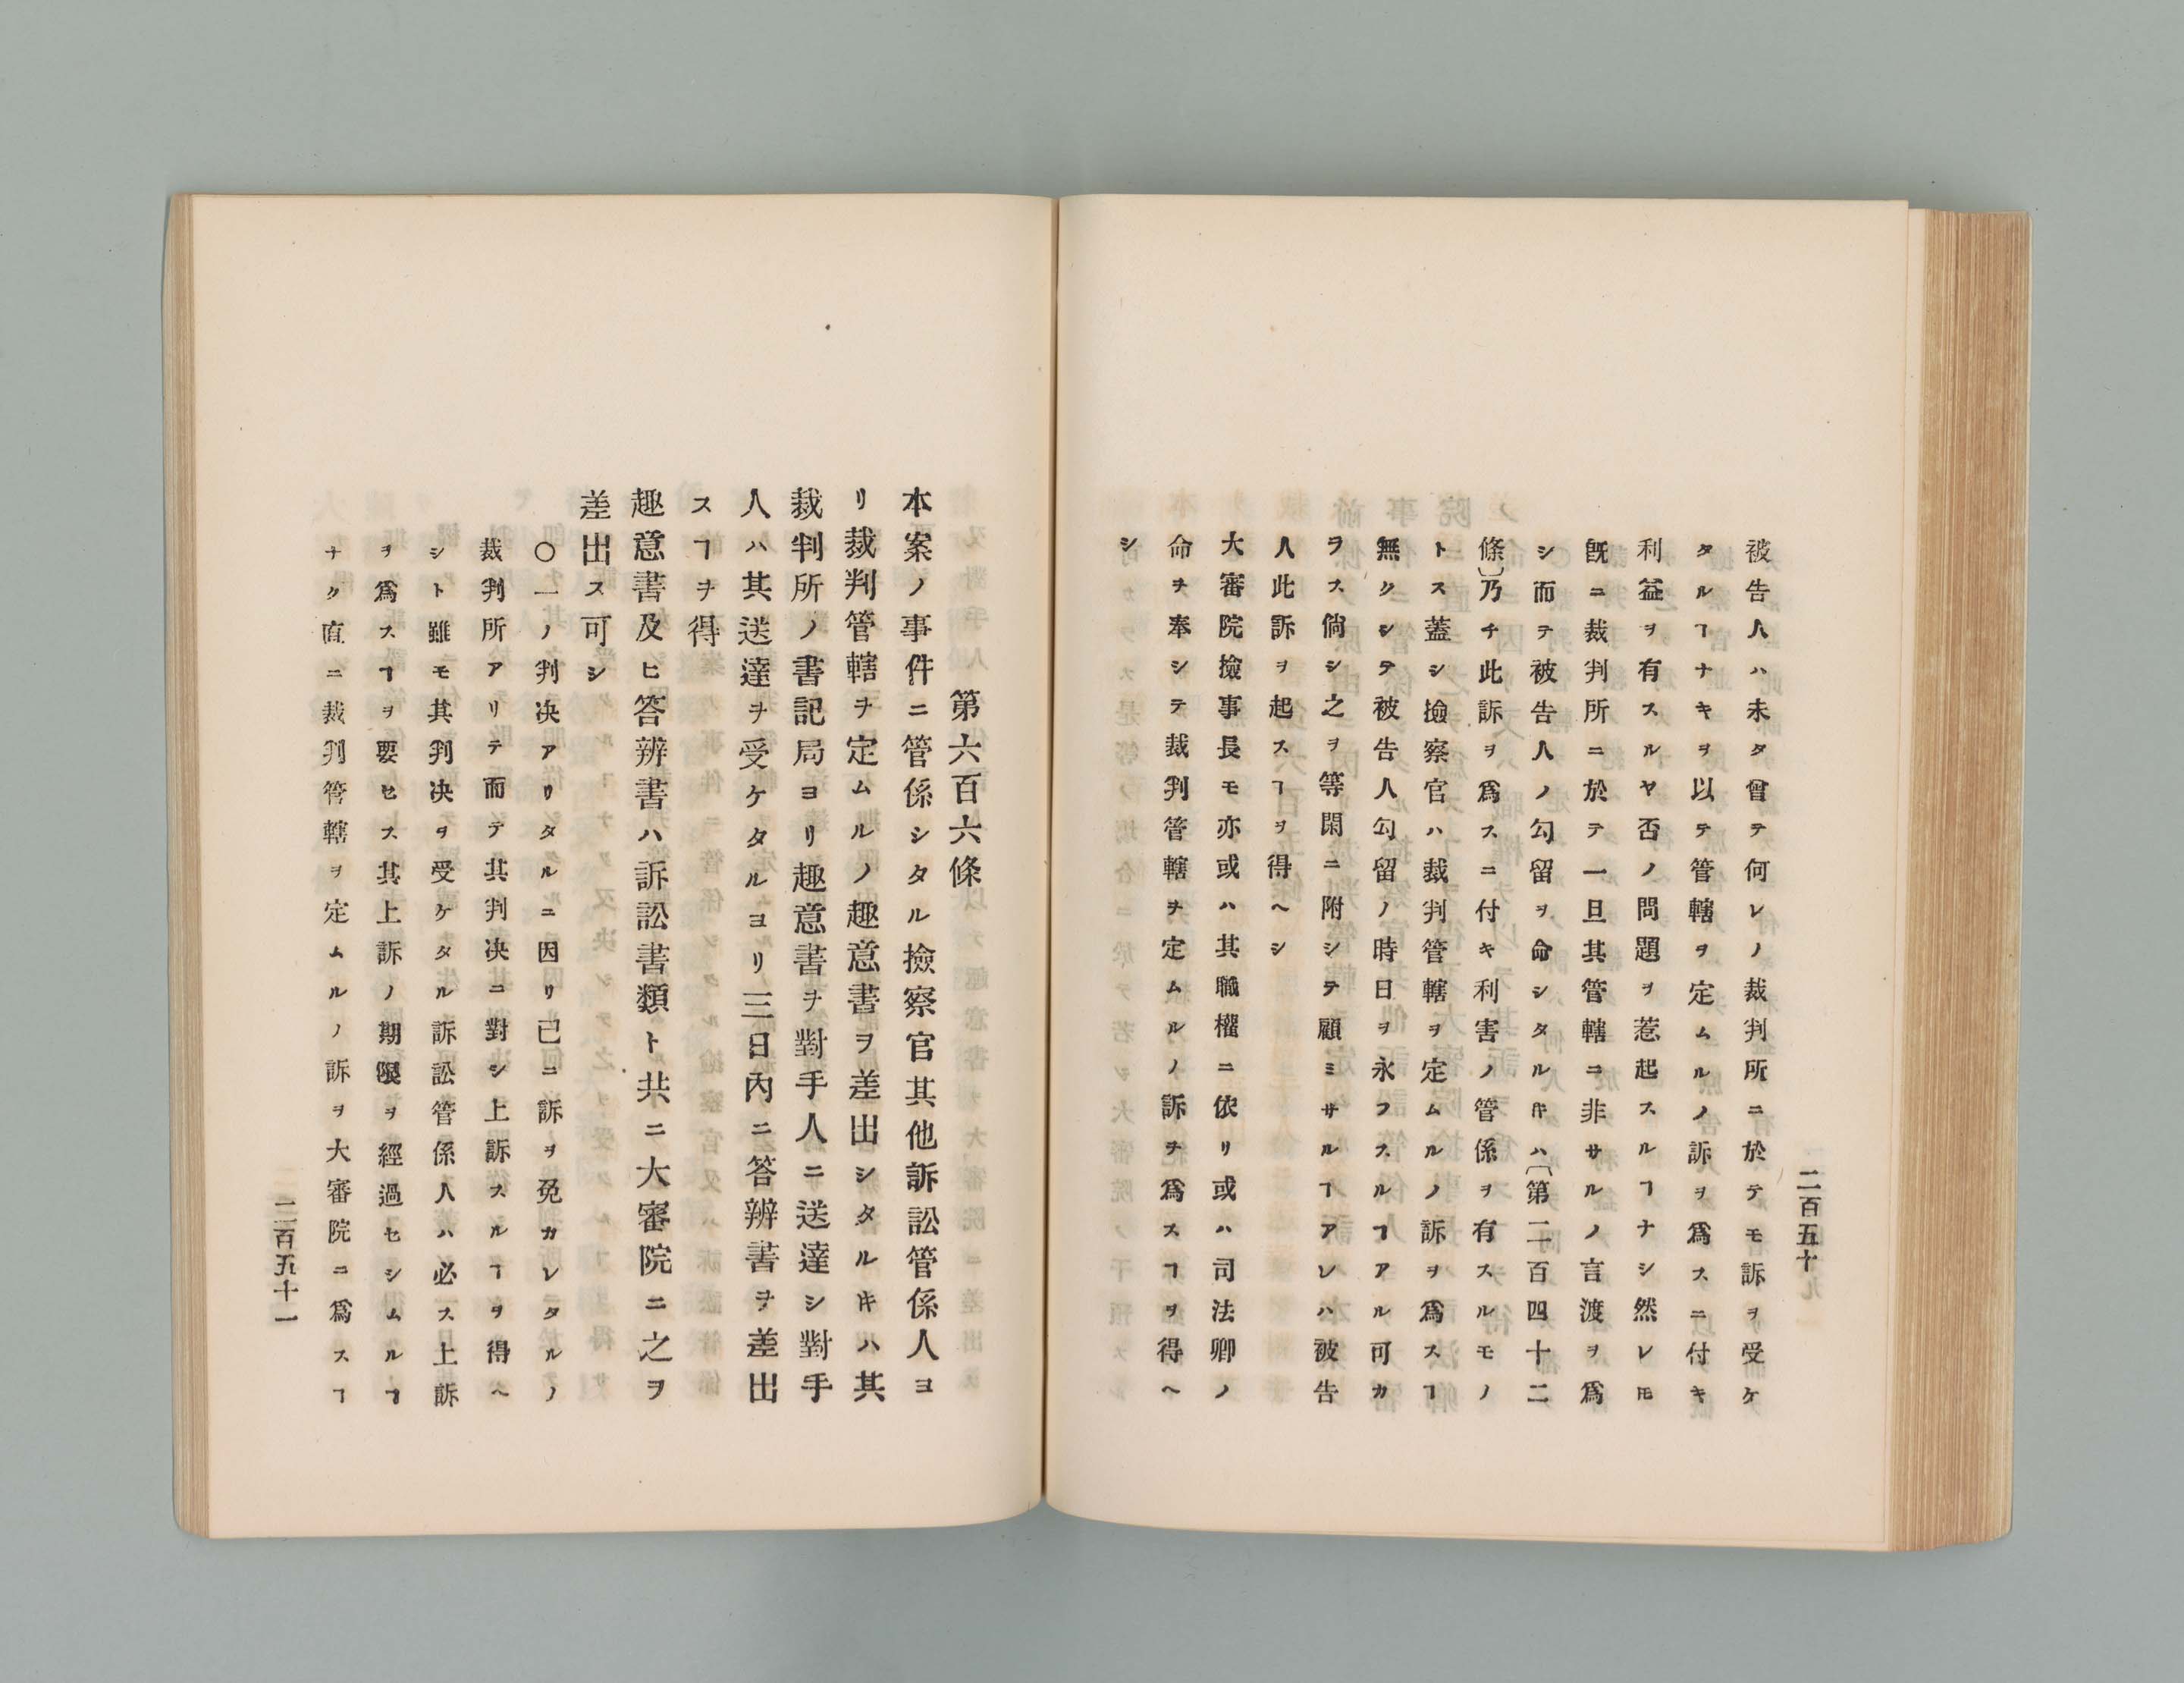 二百五十
被告人ハ未タ曾テ何レノ裁判所ニ於テモ訴ヲ受ケ
タルヿナキヲ以テ管轄ヲ定ムルノ訴ヲ爲スニ付キ
利益ヲ有スルヤ否ノ問題ヲ惹起スルヿナシ然レ𪜈
既ニ裁判所ニ於テ一旦其管轄ニ非サルノ言渡ヲ爲
シ而テ被告人ノ勾留ヲ命シタルキハ〔第二百四十二
條〕乃チ此訴ヲ爲スニ付キ利害ノ管係ヲ有スルモノ
トス蓋シ撿察官ハ裁判管轄ヲ定ムルノ訴ヲ爲スヿ
無クシテ被告人勾留ノ時日ヲ永フスルヿアル可カ
ラス倘シ之ヲ等閑ニ附シテ顧ミサルヿアレハ被告
人此訴ヲ起スヿヲ得ヘシ
大審院撿事長モ亦或ハ其職權ニ依リ或ハ司法卿ノ
命ヲ奉シテ裁判管轄ヲ定ムルノ訴ヲ爲スヿヲ得ヘ
シ
第六百六條
本案ノ事件ニ管係シタル撿察官其他訴訟管係人ヨ
リ裁判管轄ヲ定ムルノ趣意書ヲ差出シタルキハ其
裁判所ノ書記局ヨリ趣意書ヲ對手人ニ送達シ對手
人ハ其送達ヲ受ケタルヨリ三日內ニ答辨書ヲ差出
スヿヲ得
趣意書及ヒ答辨書ハ訴訟書類ト共ニ大審院ニ之ヲ
差出ス可シ
〇一ノ判决アリタルニ因リ已ニ訴ヲ免カレタルノ
裁判所アリテ而テ其判决ニ對シ上訴スルヿヲ得ヘ
シト雖モ其判决ヲ受ケタル訴訟管係人ハ必ス上訴
ヲ爲スヿヲ要セス其上訴ノ期限ヲ經過セシムルヿ
ナク直ニ裁判管轄ヲ定ムルノ訴ヲ大審院ニ爲スヿ
二百五十一